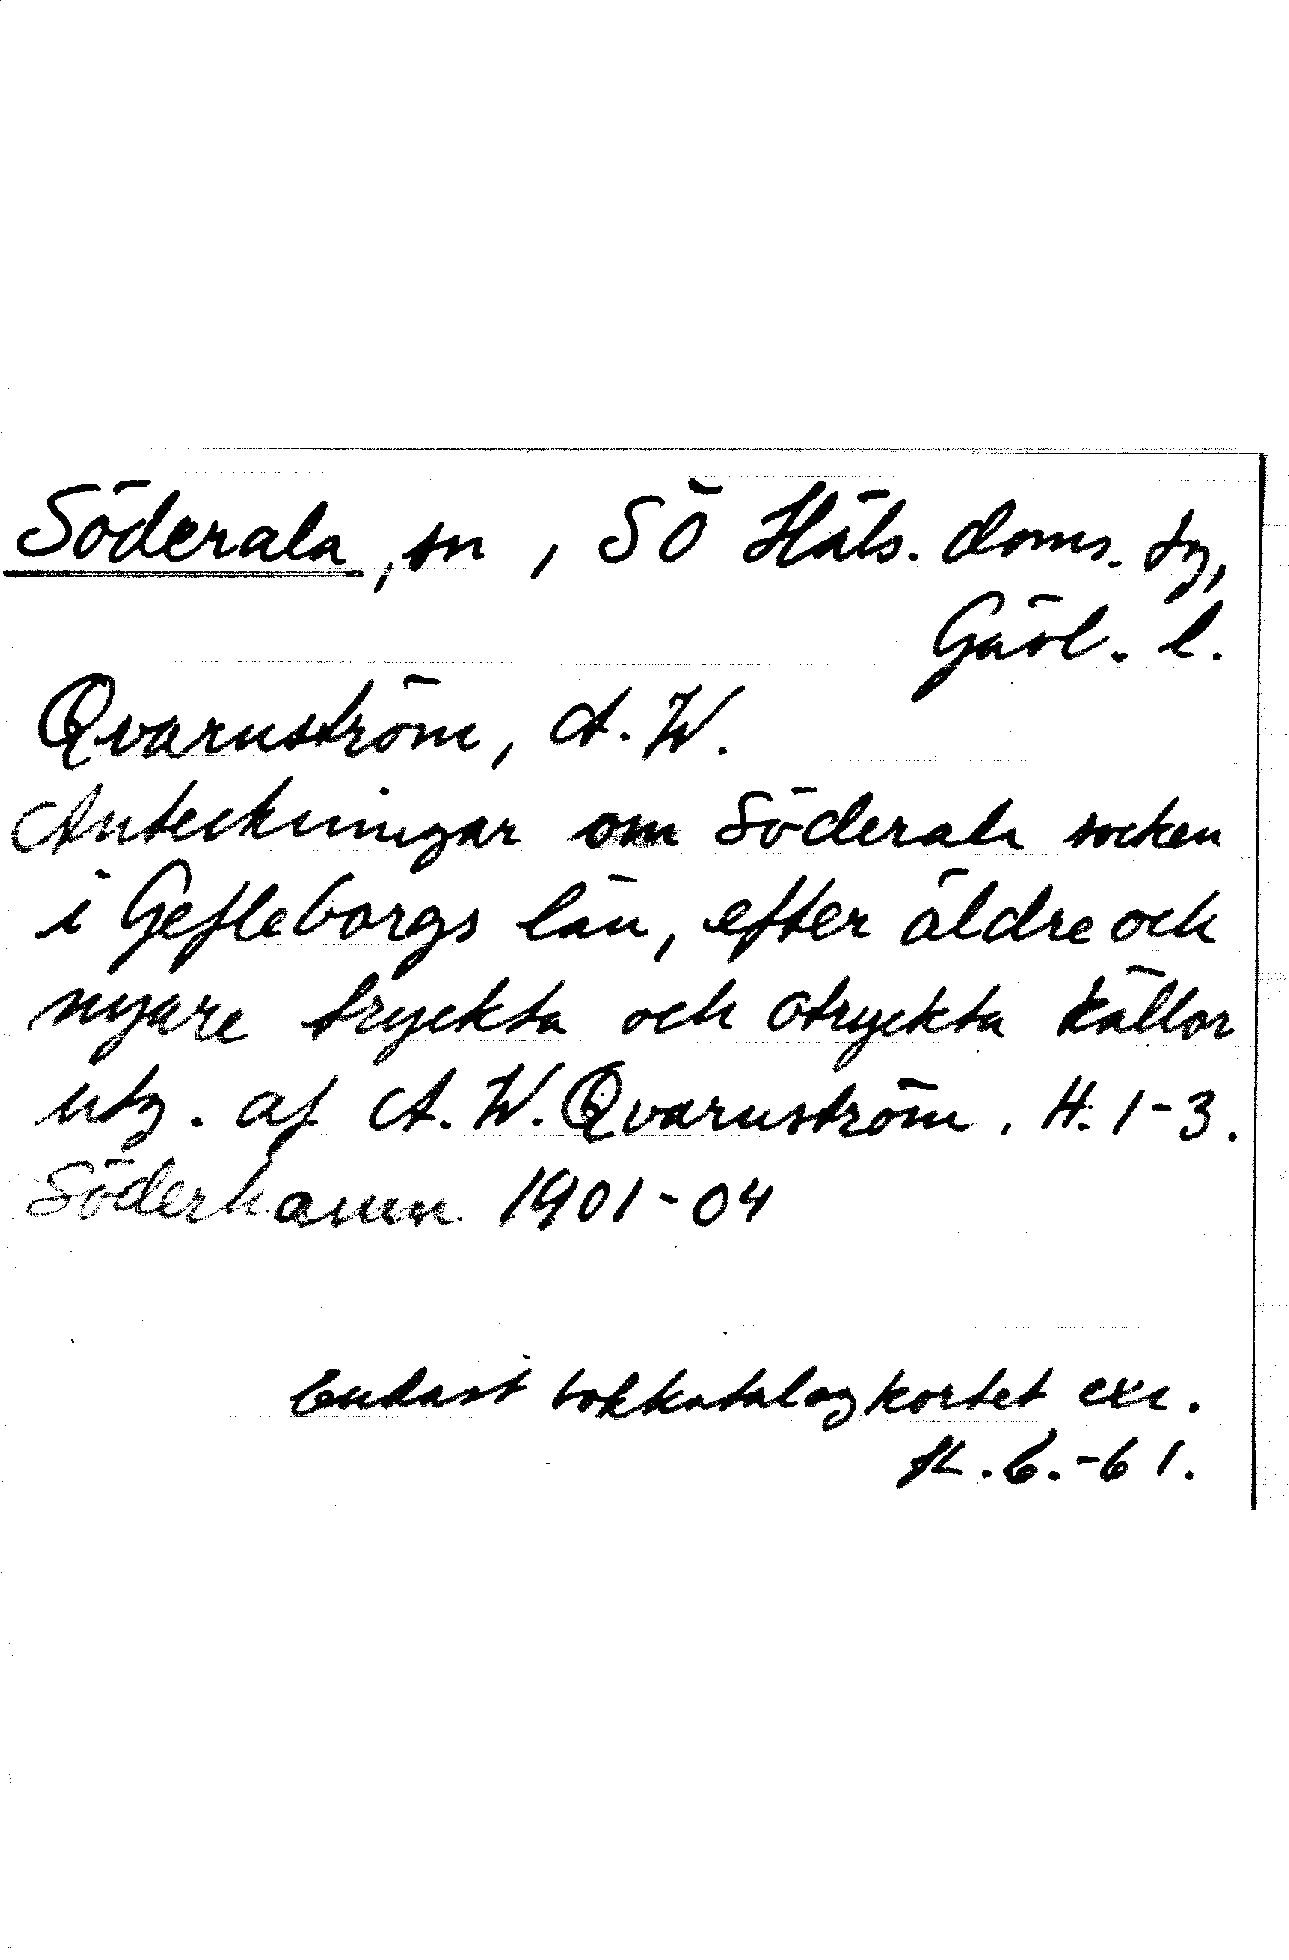 Söderala, sn, SÖ Häls. doms. tg,
Gävl. l.
Qvarnström, A. W.
Anteckningar om Söderala socken
i Gefleborgs län, efter äldre och
nyare tryckta och otryckta källor
utg. af A. W. Qvarnström. H. 1-3.
Söderhamn 1901-04
Endast bokkatalogkortet exc.
6.-61.